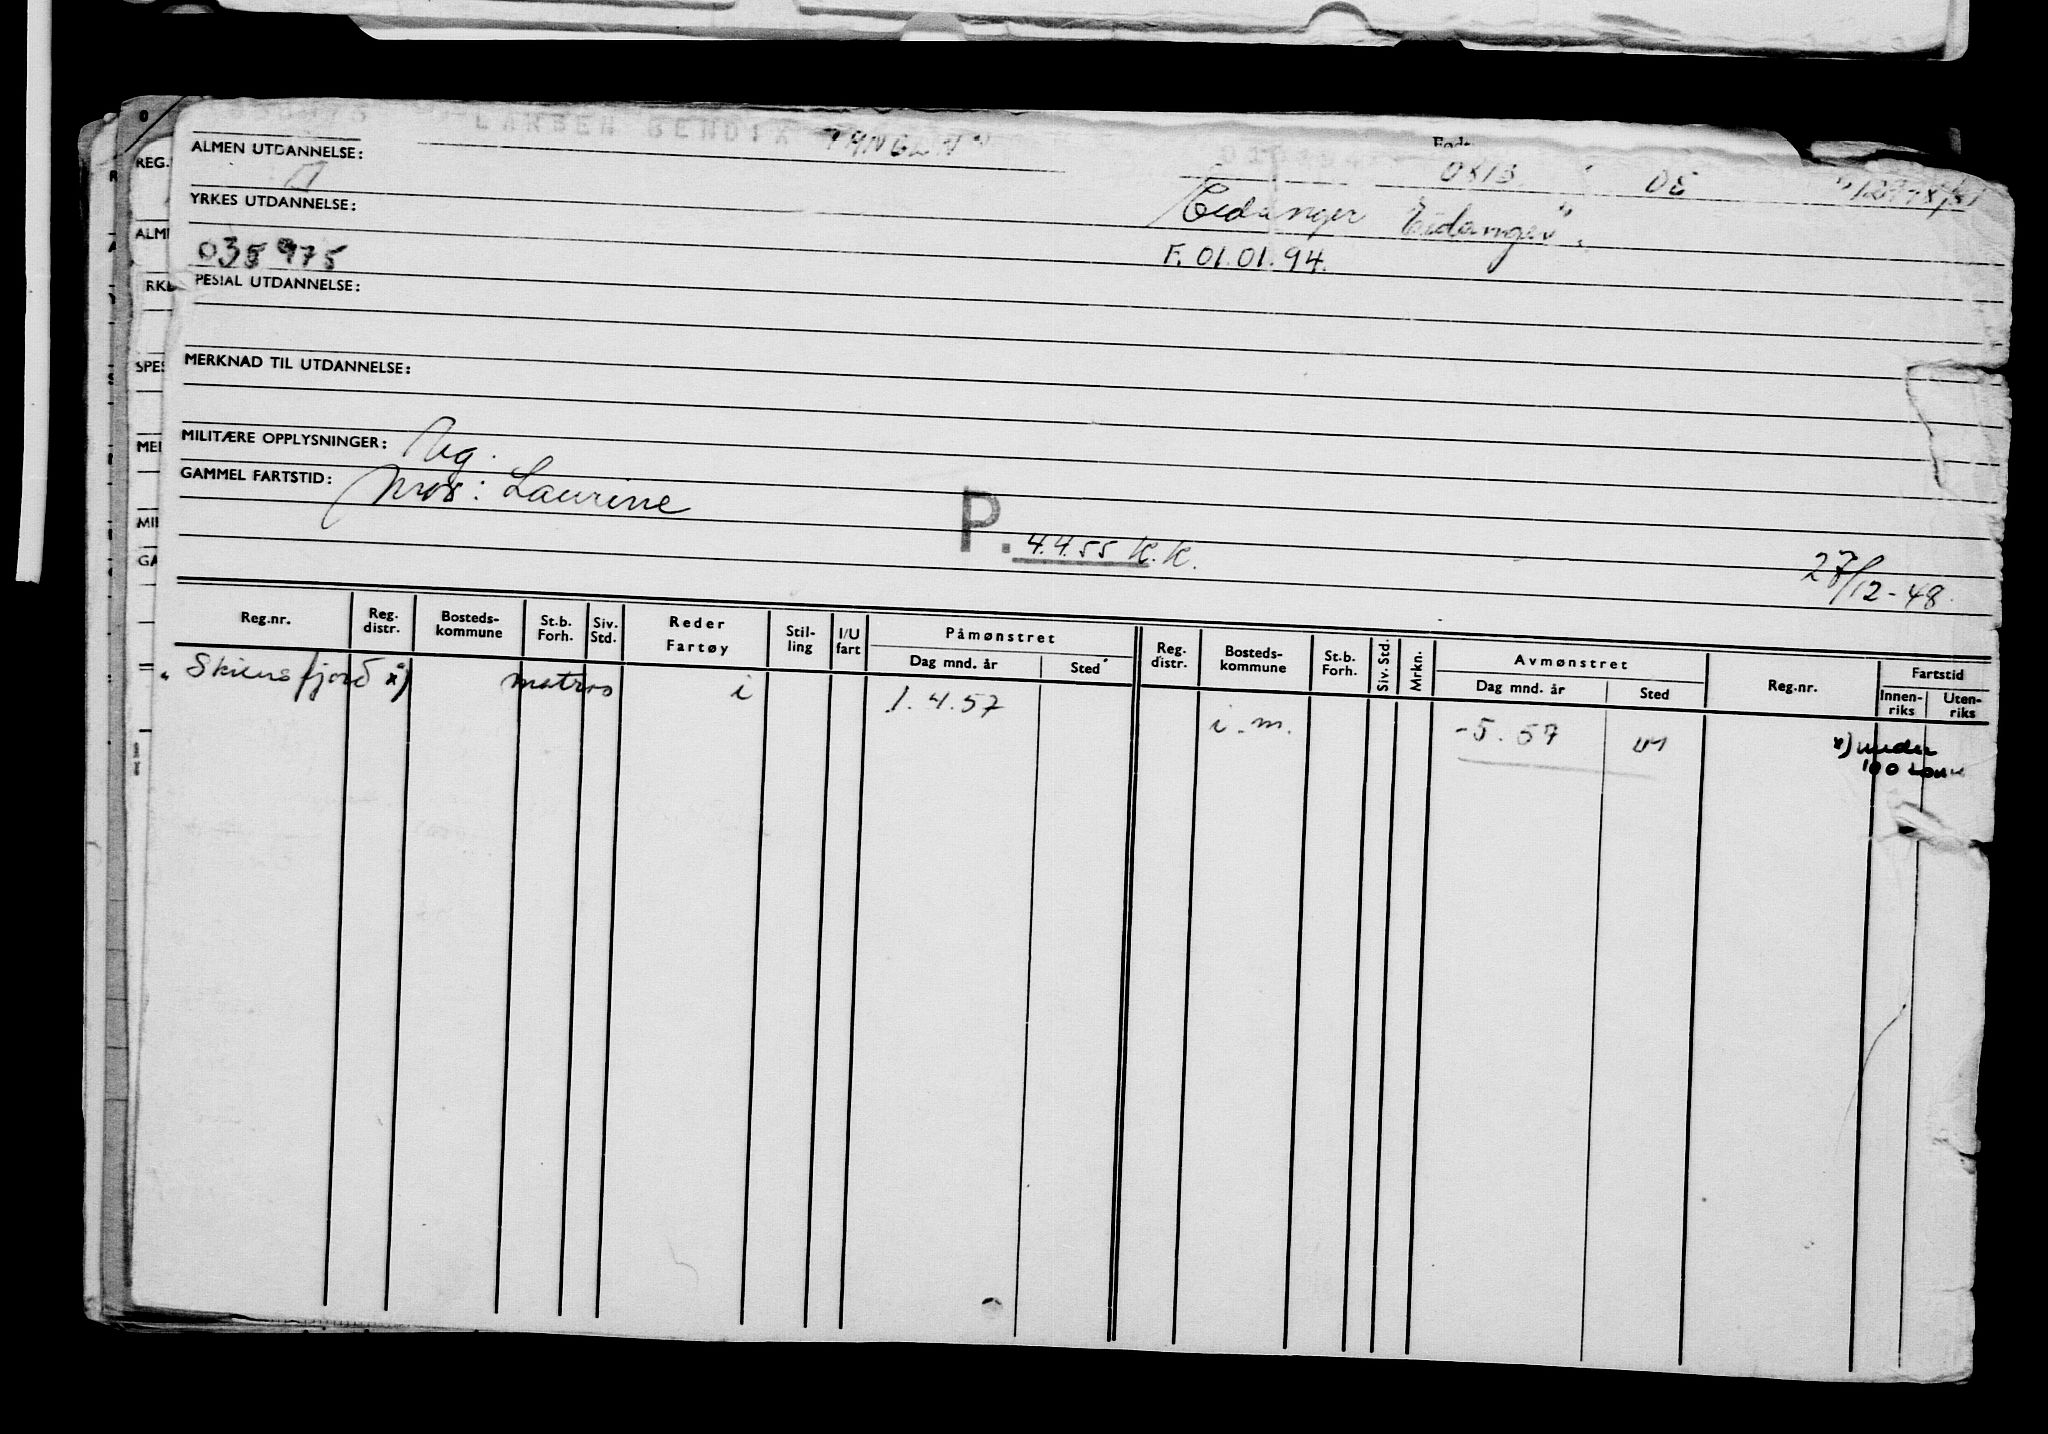 LARSEN BENDIX "TANGEN"
Født
ALMEN UTDANNELSE:
0813 08
YRKES UTDANNELSE:
Eidanger "Eidanger".
035975
F. 01.01.94.
SPESIAL UTDANNELSE:
MERKNAD TIL UTDANNELSE:
MILITÆRE OPPLYSNINGER:
GAMMEL FARTSTID: Mor: Laurine
P. 4.4.55 K.K.
27/12-48.
Reg.nr. Reg. distr. Bosteds-kommune St.b. Forh. Siv. Std. Reder Fartøy Stil-ling I/U fart Påmønstret Dag mnd. år Sted Reg. distr. Bosteds-kommune St.b. Forh. Siv. Std. Mrkn. Avmønstret Dag mnd. år Sted Reg.nr. Fartstid Innen-riks Uten-riks
Skiensfjord x) matros i 1.4.57 i.m. -5.57 x) under
100